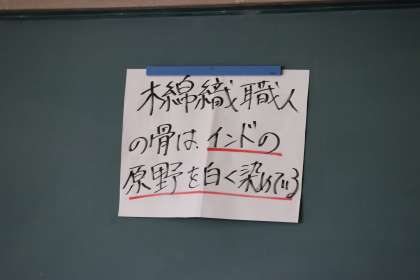 木綿織職人
の骨は、インドの
原野を白く染めている